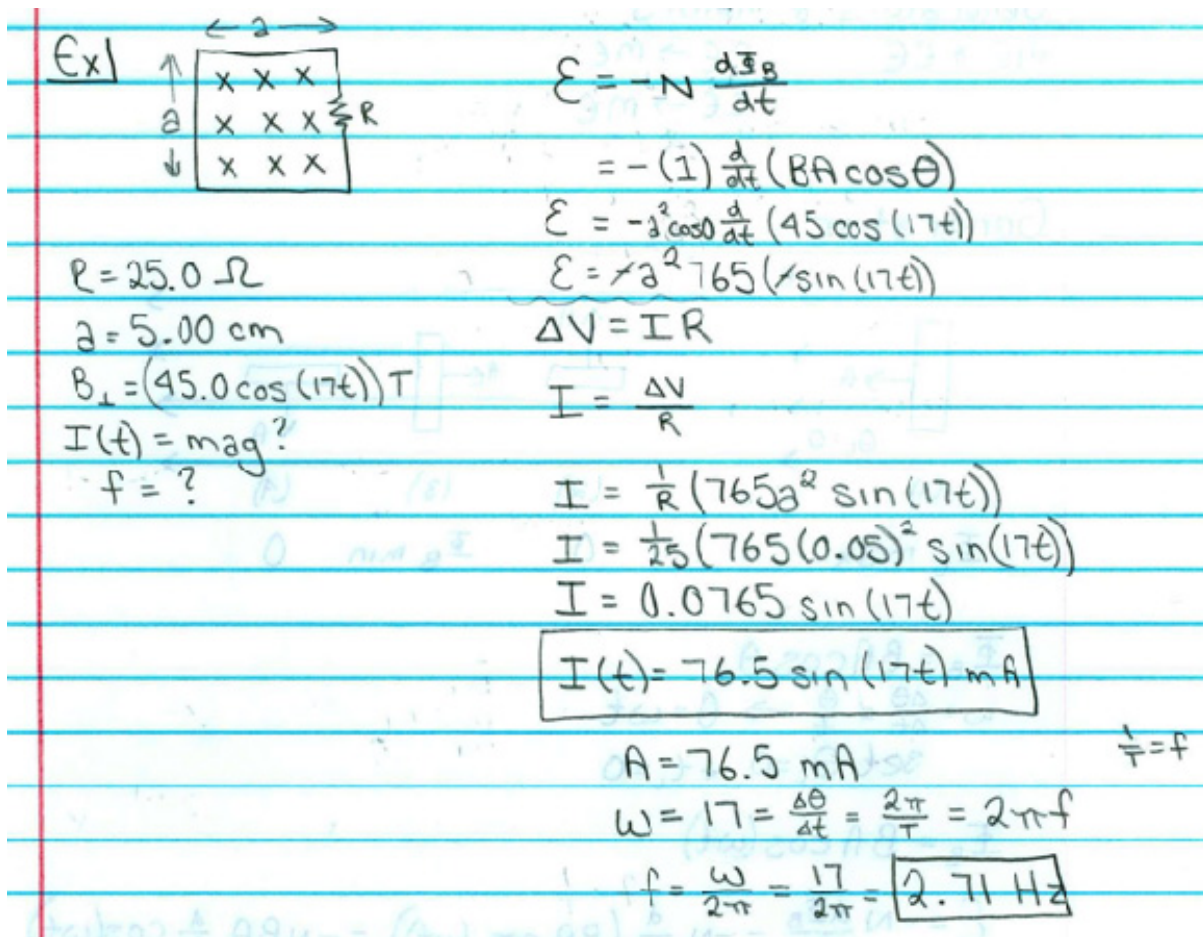 Ex1
← a →
↑
a
↓
x x x
x x x
x x x
R
R = 25.0 Ω
a = 5.00 cm
B⊥ = (45.0 cos (17t)) T
I(t) = mag?
f = ?
ε = -N dΦB/dt
= -(1) d/dt (BA cosθ)
ε = -a² cos0 d/dt (45 cos (17t))
ε = -a² 765 (-sin (17t))
ΔV = IR
I = ΔV/R
I = 1/R (765a² sin (17t))
I = 1/25 (765 (0.05)² sin(17t))
I = 0.0765 sin (17t)
I(t) = 76.5 sin (17t) mA
A = 76.5 mA
1/T = f
ω = 17 = Δθ/Δt = 2π/T = 2πf
f = ω/2π = 17/2π = 2.71 Hz